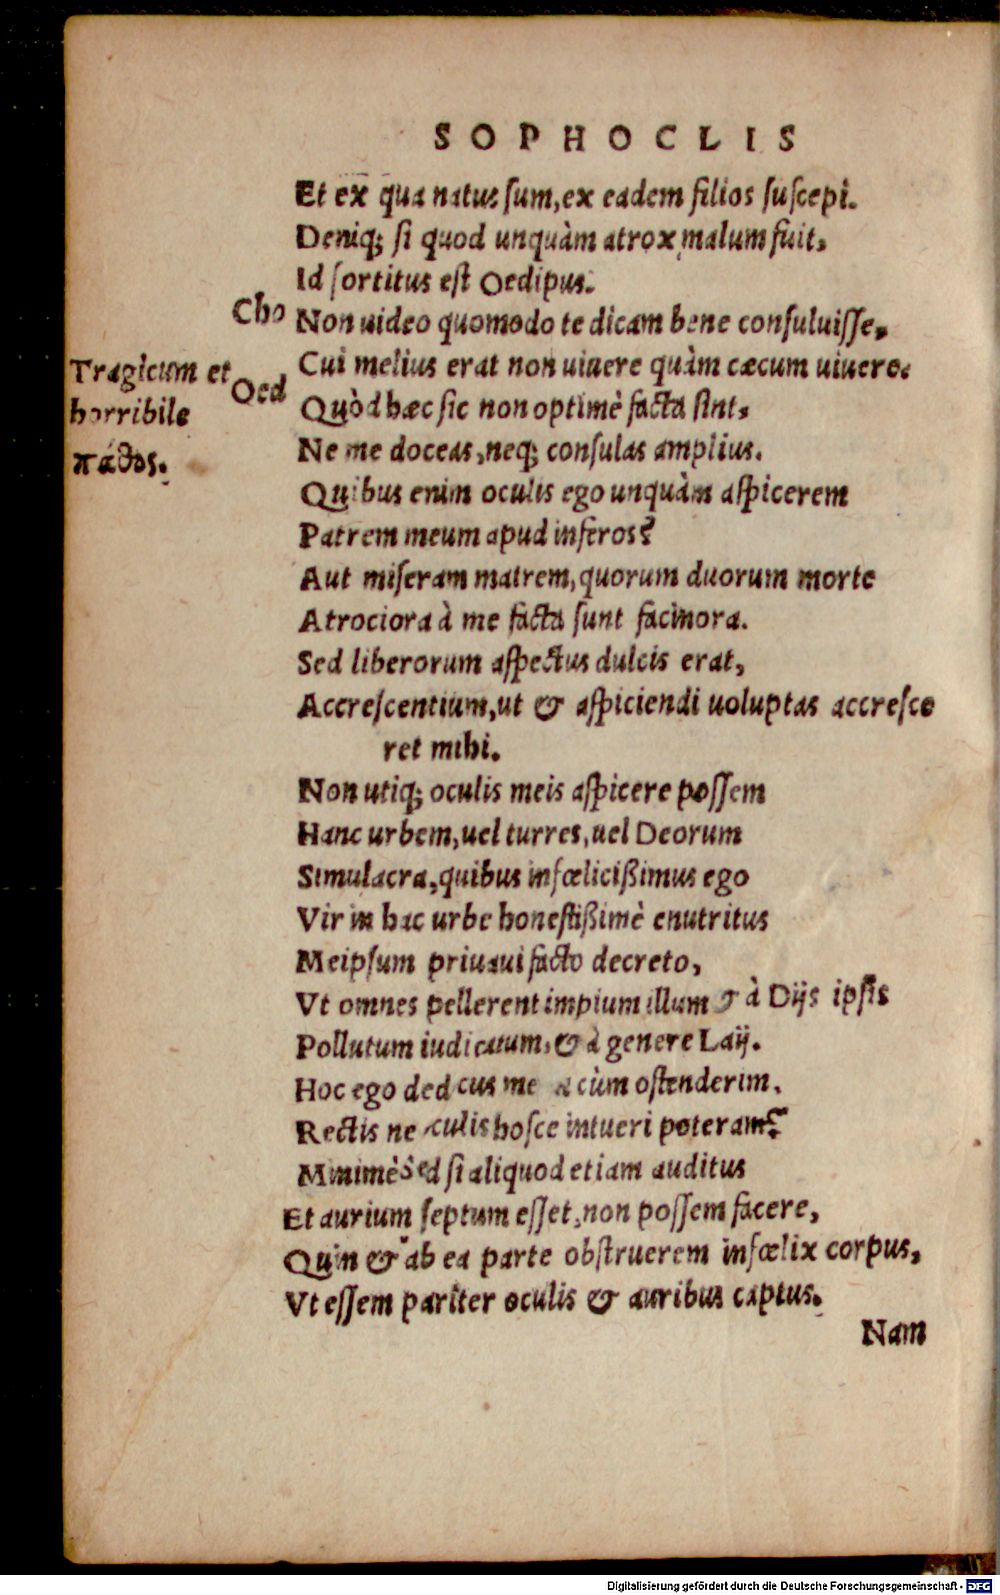 SOPHOCLIS
Et ex qua natus sum, ex eadem filios suscepi.
Deniq; si quod unquàm atrox malum fuit,
Id sortitus est Oedipus.
Cho Non uideo quomodo te dicam bene consuluisse,
Cui melius erat non uiuere quàm cæcum uiuere.
Tragicum et
horribile
πάθος.
Oed Quòd hæc sic non optimè facta sint,
Ne me doceas, neq; consulas amplius.
Quibus enim oculis ego unquàm aspicerem
Patrem meum apud inferos?
Aut miseram matrem, quorum duorum morte
Atrociora à me facta sunt facinora.
Sed liberorum aspectus dulcis erat,
Accrescentium, ut & aspiciendi uoluptas accresce
ret mihi.
Non utiq; oculis meis aspicere possem
Hanc urbem, uel turres, uel Deorum
Simulacra, quibus infœlicißimus ego
Vir in hac urbe honestißimè enutritus
Meipsum priuaui facto decreto,
Vt omnes pellerent impium illum & à Dijs ipsis
Pollutum iudicatum, & à genere Laij.
Hoc ego dedecus me cùm ostenderim,
Rectis ne oculis hosce intueri poteram?
Minimè sed si aliquod etiam auditus
Et aurium septum esset, non possem facere,
Quin & ab ea parte obstruerem infœlix corpus,
Vt essem pariter oculis & auribus captus.
Nam
Digitalisierung gefördert durch die Deutsche Forschungsgemeinschaft - DFG